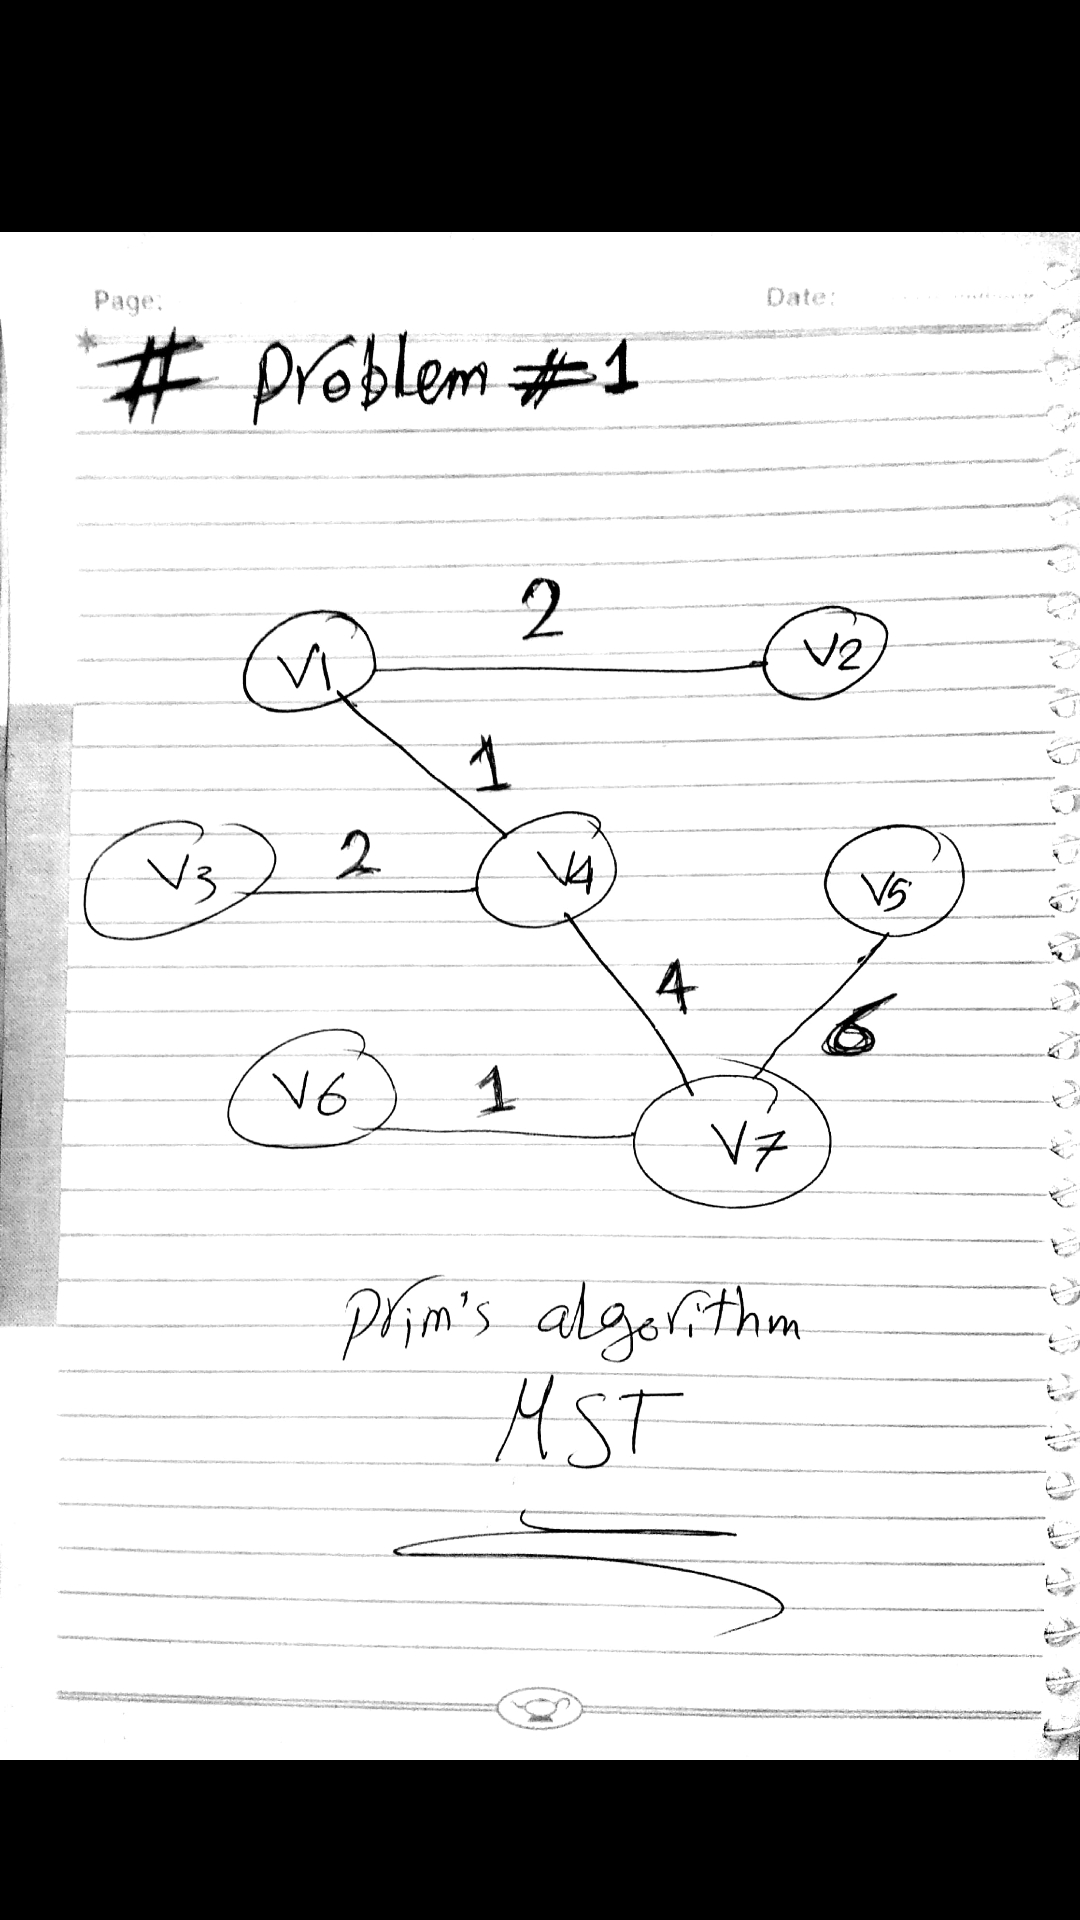 Page: Date:
# Problem #1
2
V1 V2
1
V3 2 V4 V5
4
6
V6 1 V7
prim's algorithm
MST